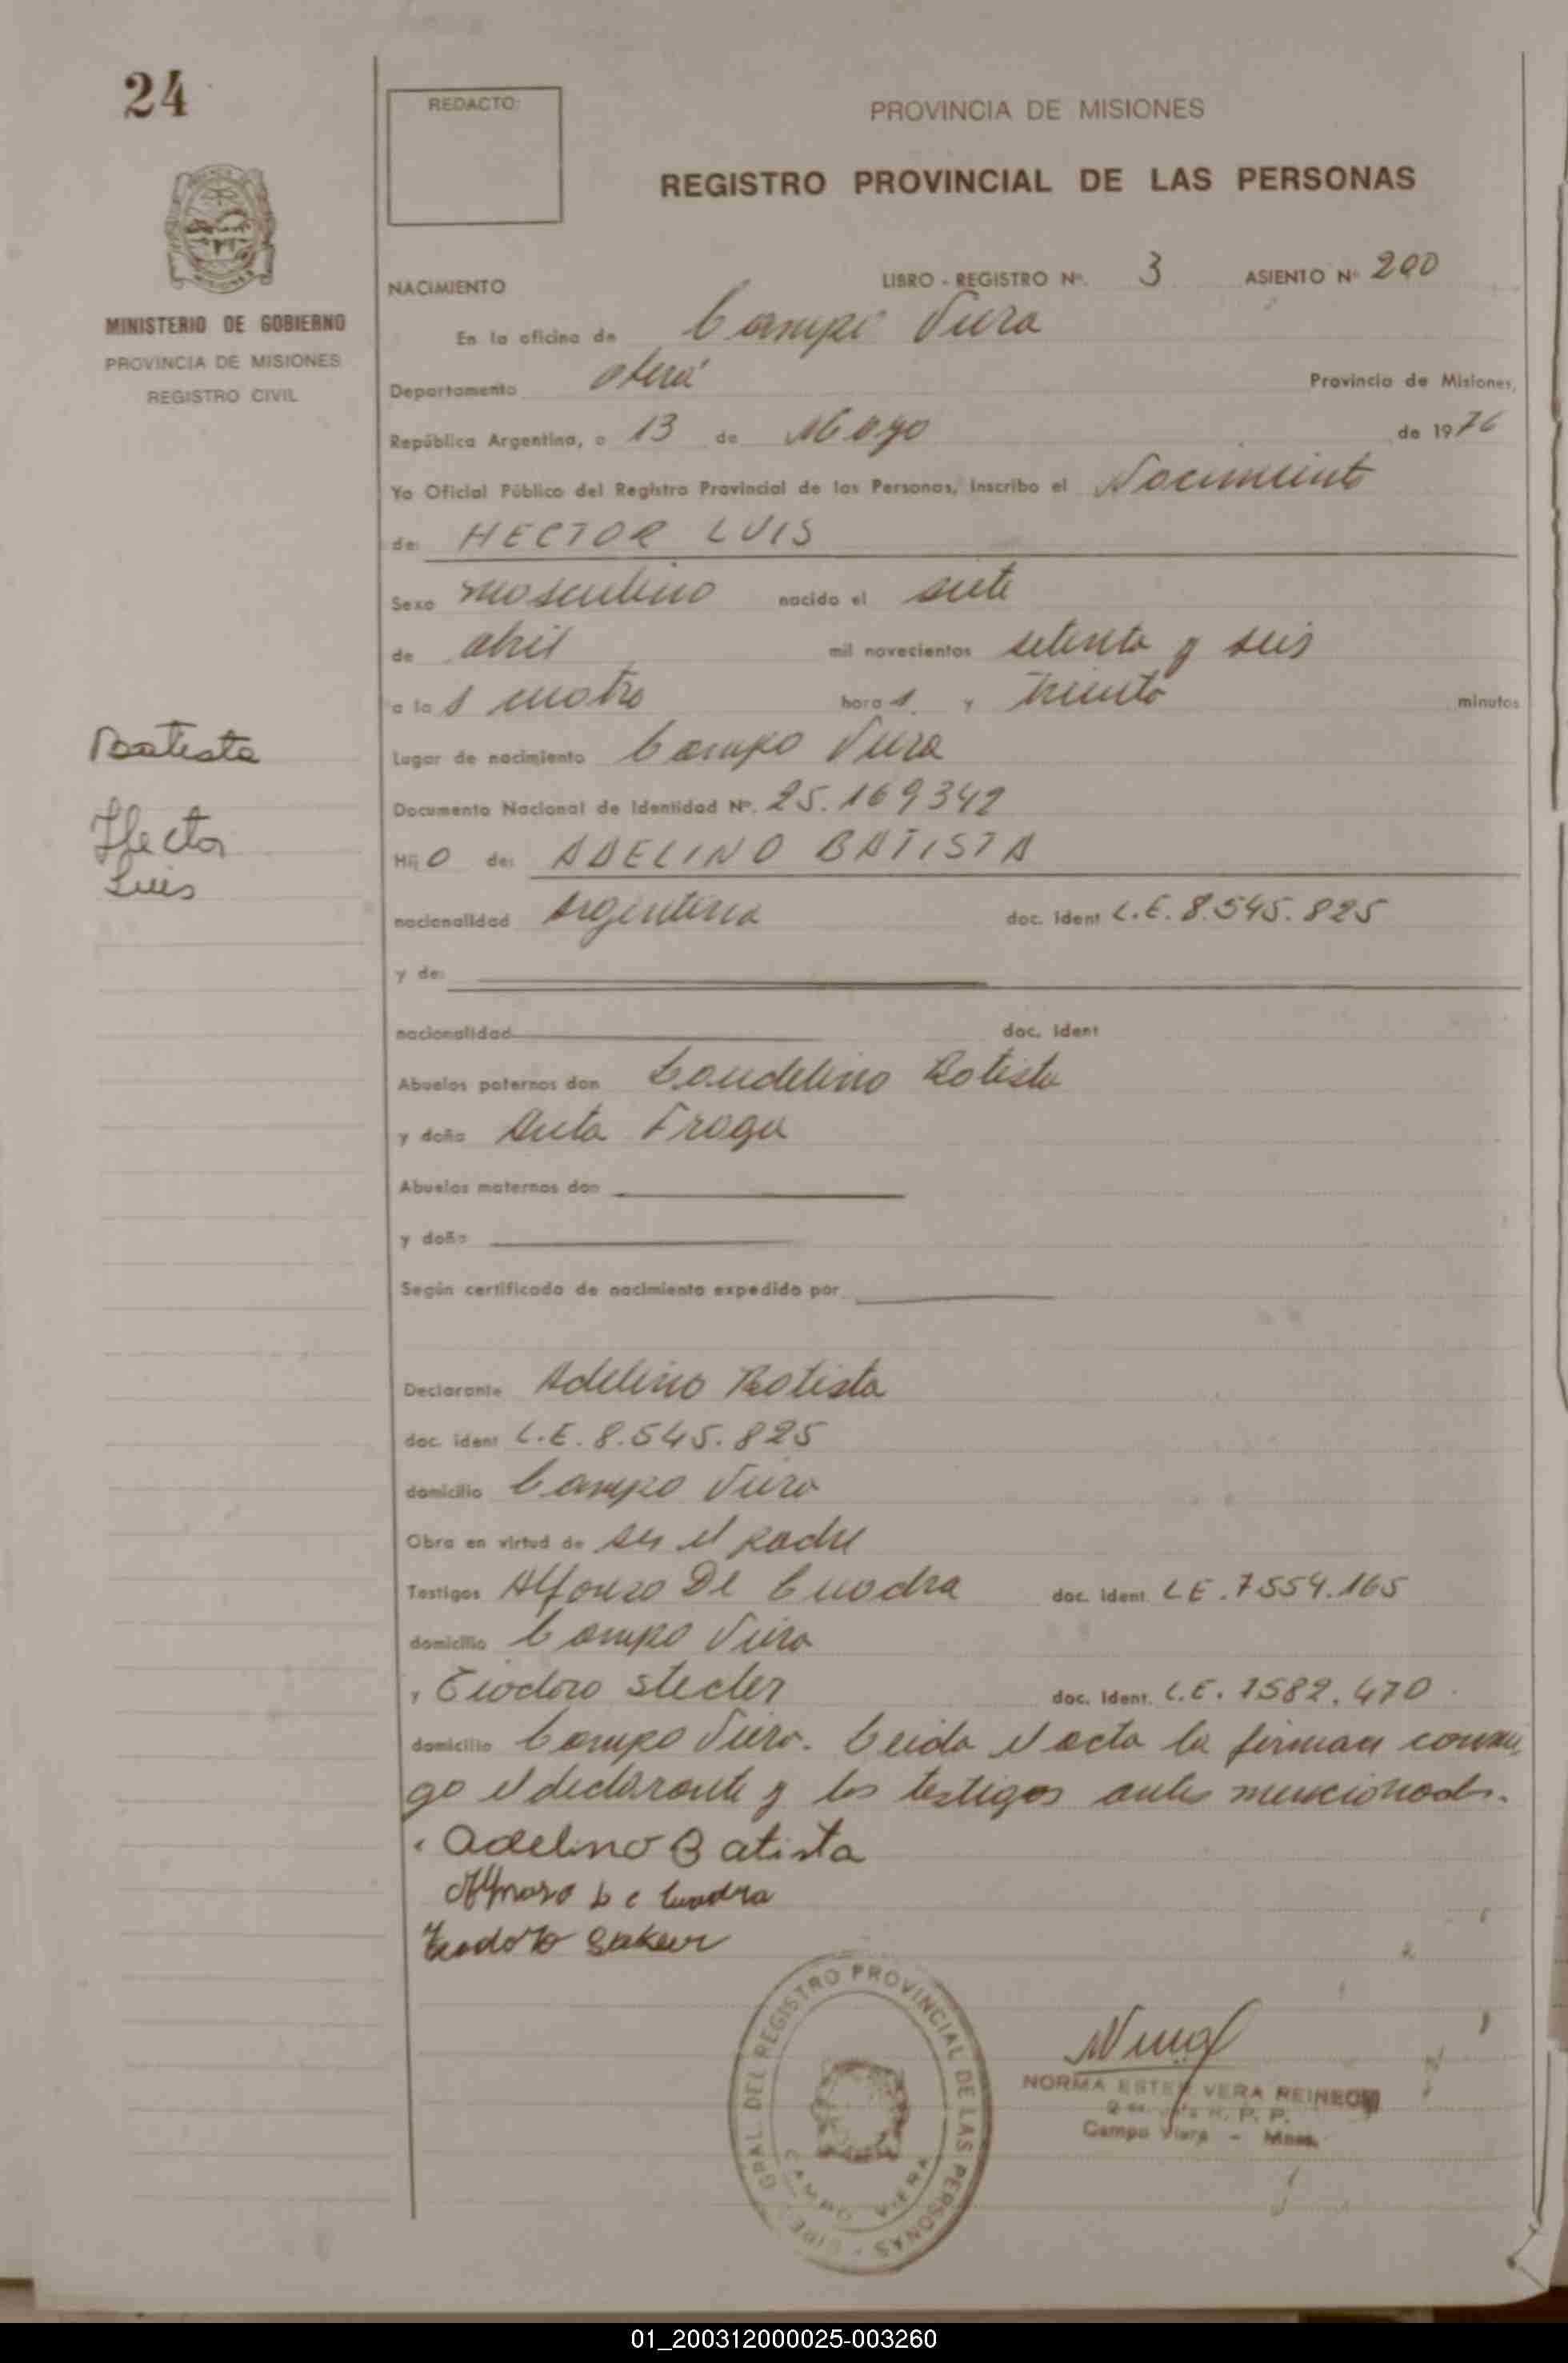 24
REDACTO:
PROVINCIA DE MISIONES
REGISTRO PROVINCIAL DE LAS PERSONAS
MINISTERIO DE GOBIERNO
PROVINCIA DE MISIONES
REGISTRO CIVIL
NACIMIENTO
LIBRO - REGISTRO Nº. 3 ASIENTO Nº 200
En la oficina de Campo Viera
Departamento Oberá Provincia de Misiones,
República Argentina, a 13 de Mayo de 1976
Yo Oficial Público del Registro Provincial de las Personas, Inscribo el Nacimiento
de: HECTOR LUIS
Sexo masculino nacido el siete
de abril mil novecientos setenta y seis
a las cuatro horas y treinta minutos
Lugar de nacimiento Campo Viera
Documento Nacional de Identidad Nº. 25.169342
Hijo de: ADELINO BATISTA
nacionalidad Argentina doc. Ident L.E. 8.545.825
y de:
nacionalidad doc. Ident
Abuelos paternos don Batista
y doña Fraga
Abuelos maternos don
y doña
Según certificado de nacimiento expedido por
Declarante Adelino Batista
doc. ident L.E. 8.545.825
domicilio Campo Viera
Obra en virtud de ser el padre
Testigos Alfonso De Cuadra doc. Ident. L E. 7554.165
domicilio Campo Viera
y Teodoro doc. Ident. L.E. 7582.470.
domicilio Campo Viera. Leida el acta la firman conmi
go el declarante y los testigos antes mencionados.
Adelino Batista
Cuadra
Teodoro
Batista
Hector
Luis
GRAL. DEL REGISTRO PROVINCIAL DE LAS PERSONAS
CAMPO VIERA
NORMA ESTER VERA
R. P. P.
Campo Viera - Mnes.
01_200312000025-003260